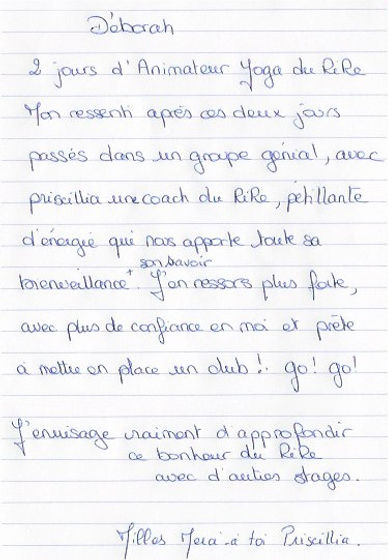 Déborah
2 jours d'Animateur Yoga du RiRe
Mon ressenti après ces deux jours
passés dans un groupe génial, avec
priscillia une coach du RiRe, pétillante
d'énergie qui nous apporte toute sa
bienveillance + son savoir. J'en ressors plus forte,
avec plus de confiance en moi et prête
à mettre en place un club !. go! go!
J'envisage vraiment d'approfondir
ce bonheur du RiRe
avec d'autres stages.
Milles Merci à toi Priscillia.